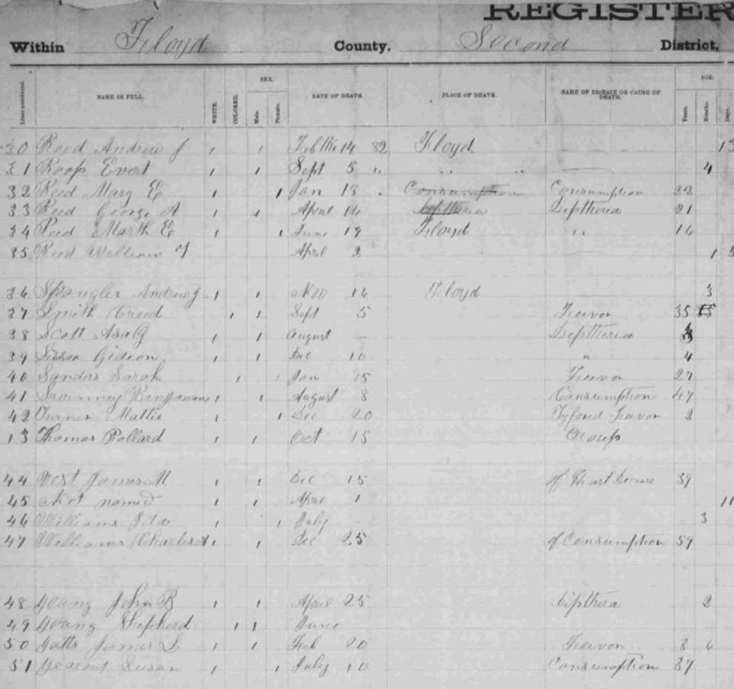 REGISTER
Within Floyd County, Second District,
Lines numbered. NAME IN FULL. WHITE. COLORED. SEX. Male. Female. DATE OF DEATH. PLACE OF DEATH. NAME OF DISEASE OR CAUSE OF DEATH. AGE. Years. Months. Days.
30 Reed Andrew J Feb 14 82 Floyd 13
31 Roop Evert Sept 5 " " " 4
32 Reed Mary E Jan 18 " Consumption Consumption 22
33 Reed George A April 14 Dipttheria Dipttheria 21
34 Reed Marth E June 19 Floyd " 14
35 Reed William April 3 1 5
36 Spangler Andrew J Nov 14 Floyd 3
37 Smith Creed Sept 5 Feavor 35
38 Scott Asa August — Dipttheria
39 Gideon Dec 10 " 4
40 Sanders Sarah Jan 15 Feavor 27
41 August 8 Consumption 47
42 Turner Matter Dec 20 Tyford Feavor 2
13 Thomas Pollard Oct 15 Croup
44 Vest James M Dec 15 of Heart 39
45 Not named April 1 11
46 Williams Ida July 3
47 Williams Dec 25 of Consumption 59
48 Young John B April 25 Dipthera 2
49 Young Shepherd June
50 James L Feb 20 Feavor 3 6
51 Susan July 10 Consumption 37